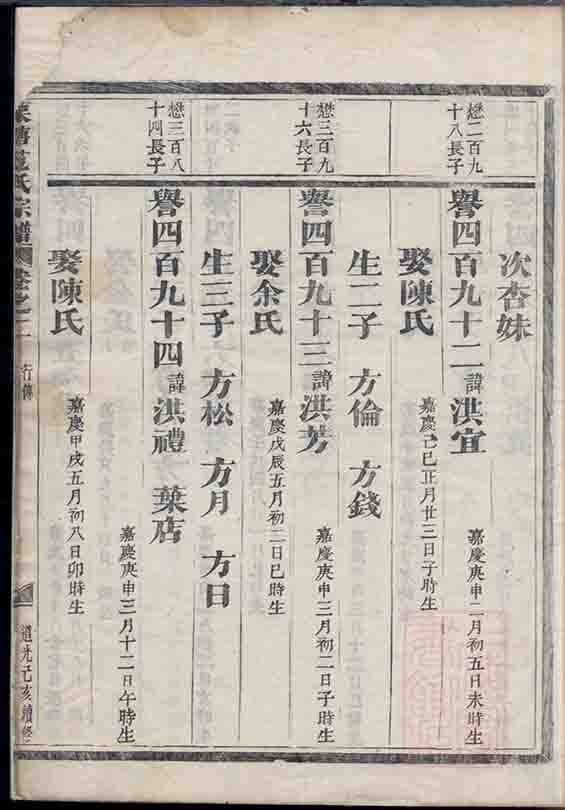 次杏妹
懋二百九
十八長子
譽四百九十二諱洪宜
嘉慶庚申二月初五日未時生
娶陳氏
嘉慶己巳正月廿三日子時生
生二子 方倫 方錢
懋三百九
十六長子
譽四百九十三諱洪芳
嘉慶庚申三月初二日子時生
娶余氏
嘉慶戊辰五月初二日巳時生
生三子 方松 方月 方日
懋三百八
十四長子
譽四百九十四諱洪禮 葉店
嘉慶庚申三月十二日午時生
娶陳氏
嘉慶甲戌五月初八日卯時生
氏宗譜 卷之二 行傳 道光己亥續修